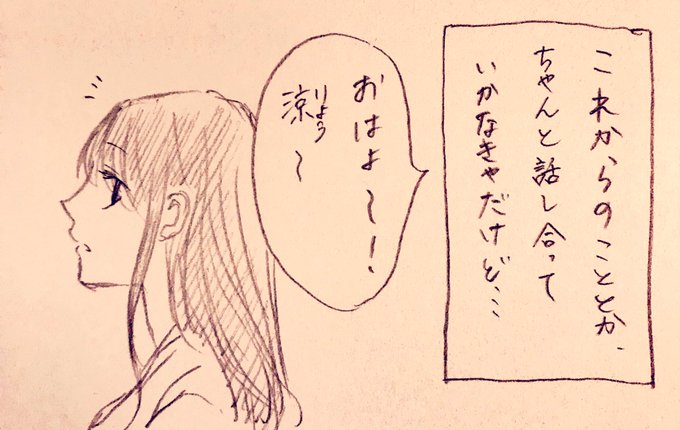 これからのこととか、
ちゃんと話し合って
いかなきゃだけど…
おはよ〜！
涼〜
りょう